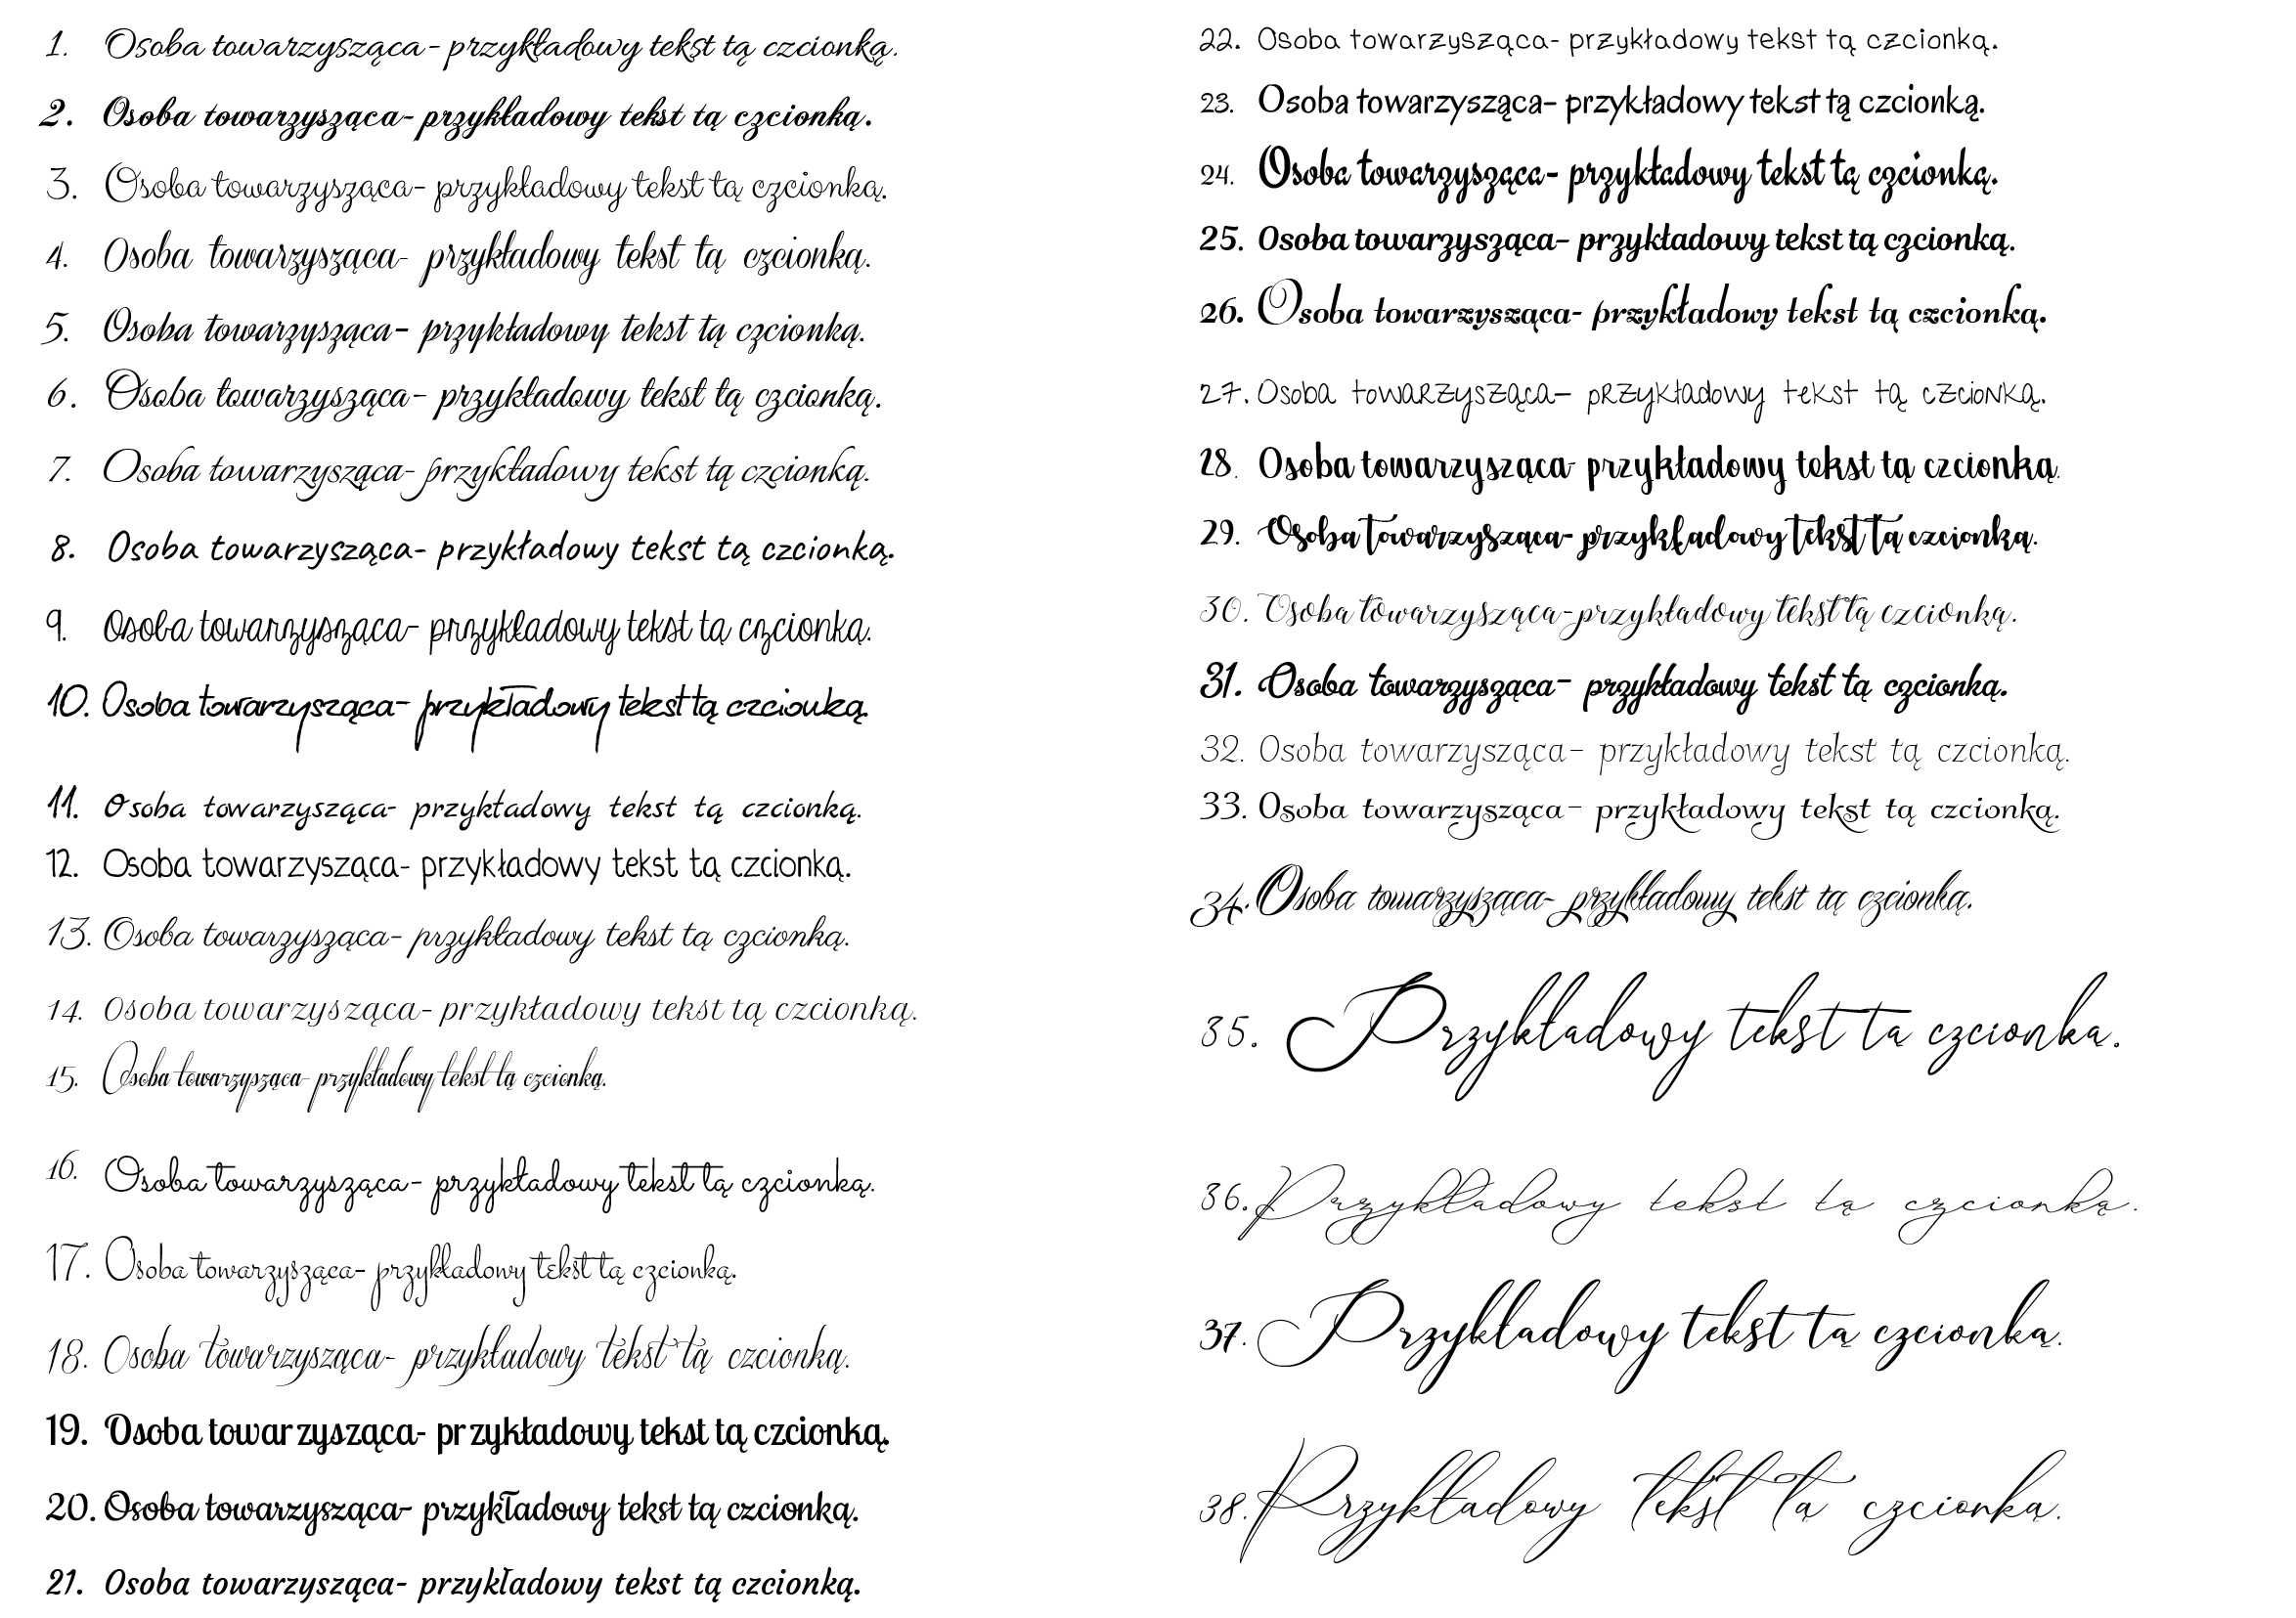 1. Osoba towarzysząca- przykładowy tekst tą czcionką.
2. Osoba towarzysząca- przykładowy tekst tą czcionką.
3. Osoba towarzysząca- przykładowy tekst tą czcionką.
4. Osoba towarzysząca- przykładowy tekst tą czcionką.
5. Osoba towarzysząca- przykładowy tekst tą czcionką.
6. Osoba towarzysząca- przykładowy tekst tą czcionką.
7. Osoba towarzysząca- przykładowy tekst tą czcionką.
8. Osoba towarzysząca- przykładowy tekst tą czcionką.
9. Osoba towarzysząca- przykładowy tekst tą czcionką.
10. Osoba towarzysząca- przykładowy tekst tą czcionką.
11. Osoba towarzysząca- przykładowy tekst tą czcionką.
12. Osoba towarzysząca- przykładowy tekst tą czcionką.
13. Osoba towarzysząca- przykładowy tekst tą czcionką.
14. Osoba towarzysząca- przykładowy tekst tą czcionką.
15. Osoba towarzysząca- przykładowy tekst tą czcionką.
16. Osoba towarzysząca- przykładowy tekst tą czcionką.
17. Osoba towarzysząca- przykładowy tekst tą czcionką.
18. Osoba towarzysząca- przykładowy tekst tą czcionką.
19. Osoba towarzysząca- przykładowy tekst tą czcionką.
20. Osoba towarzysząca- przykładowy tekst tą czcionką.
21. Osoba towarzysząca- przykładowy tekst tą czcionką.
22. Osoba towarzysząca- przykładowy tekst tą czcionką.
23. Osoba towarzysząca- przykładowy tekst tą czcionką.
24. Osoba towarzysząca- przykładowy tekst tą czcionką.
25. Osoba towarzysząca- przykładowy tekst tą czcionką.
26. Osoba towarzysząca- przykładowy tekst tą czcionką.
27. Osoba towarzysząca- przykładowy tekst tą czcionką.
28. Osoba towarzysząca- przykładowy tekst tą czcionką.
29. Osoba towarzysząca- przykładowy tekst tą czcionką.
30. Osoba towarzysząca- przykładowy tekst tą czcionką.
31. Osoba towarzysząca- przykładowy tekst tą czcionką.
32. Osoba towarzysząca- przykładowy tekst tą czcionką.
33. Osoba towarzysząca- przykładowy tekst tą czcionką.
34. Osoba towarzysząca- przykładowy tekst tą czcionką.
35. Przykładowy tekst ta czcionka.
36. Przykładowy tekst tą czcionką.
37. Przykładowy tekst tą czcionką.
38. Przykładowy tekst tą czcionką.